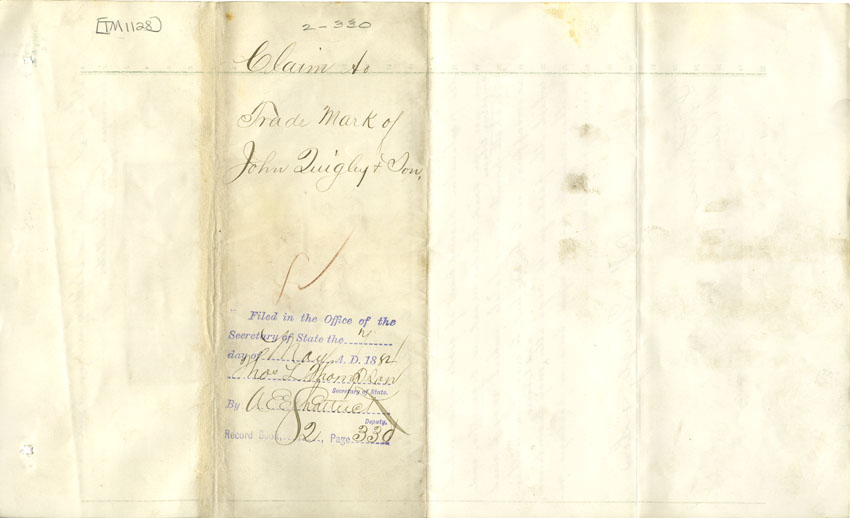 [TM1128]
2-330
Claim to
Trade Mark of
John Quigley & Son,
Filed in the Office of the
Secretary of State the
day of May A. D. 188
Thos L Thompson
Secretary of State.
By A E Shattuck
Deputy.
Record Book 2, Page 330